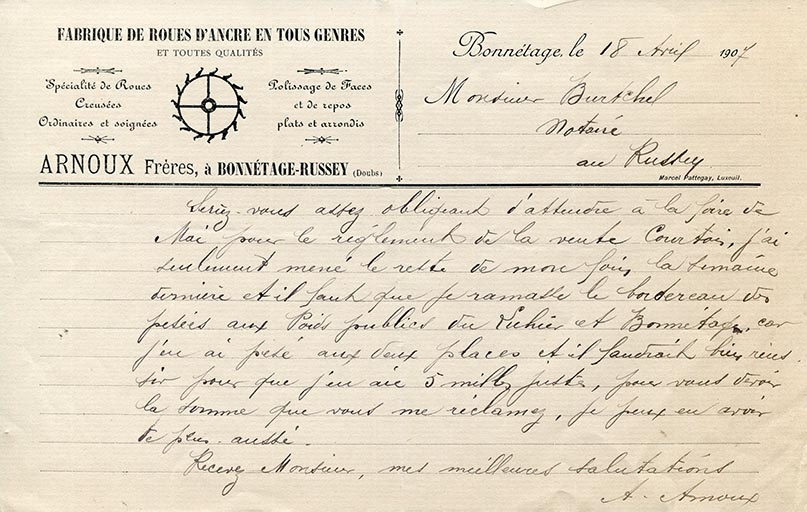 FABRIQUE DE ROUES D'ANCRE EN TOUS GENRES
ET TOUTES QUALITÉS
Spécialité de Roues
Creusées
Ordinaires et soignées
Polissage de Faces
et de repos
plats et arrondis
ARNOUX Frères, à BONNÉTAGE-RUSSEY (Doubs)
Bonnétage, le 18 Avril 1907
Monsieur Burtchel
Notaire
au Russey
Marcel Pattegay, Luxeuil.
Seriez-vous assez obligeant d'attendre à la foire de
Mai pour le réglement de la vente Courtois, j'ai
seulement mené le reste de mon foin la semaine
dernière et il faut que je ramasse le bordereau des
pesées aux Poids publics du Luhier et Bonnétage, car
j'en ai pesé aux deux places et il faudrait bien
pour que j'en aie 5 mille juste, pour vous devoir
la somme que vous me réclamez, je peux en avoir
de peu aussi.
Recevez Monsieur, mes meilleures salutations
A. Arnoux